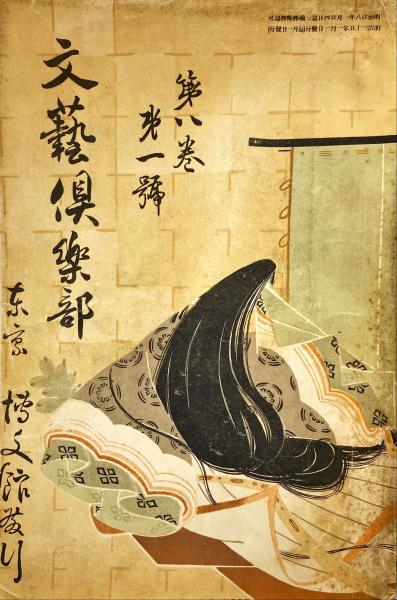 明治廿八年一月廿四日第三種郵便物認可
明治三十五年一月一日發行(每月一日發行)
第八卷
第一號
文藝倶樂部
東京 博文館發行